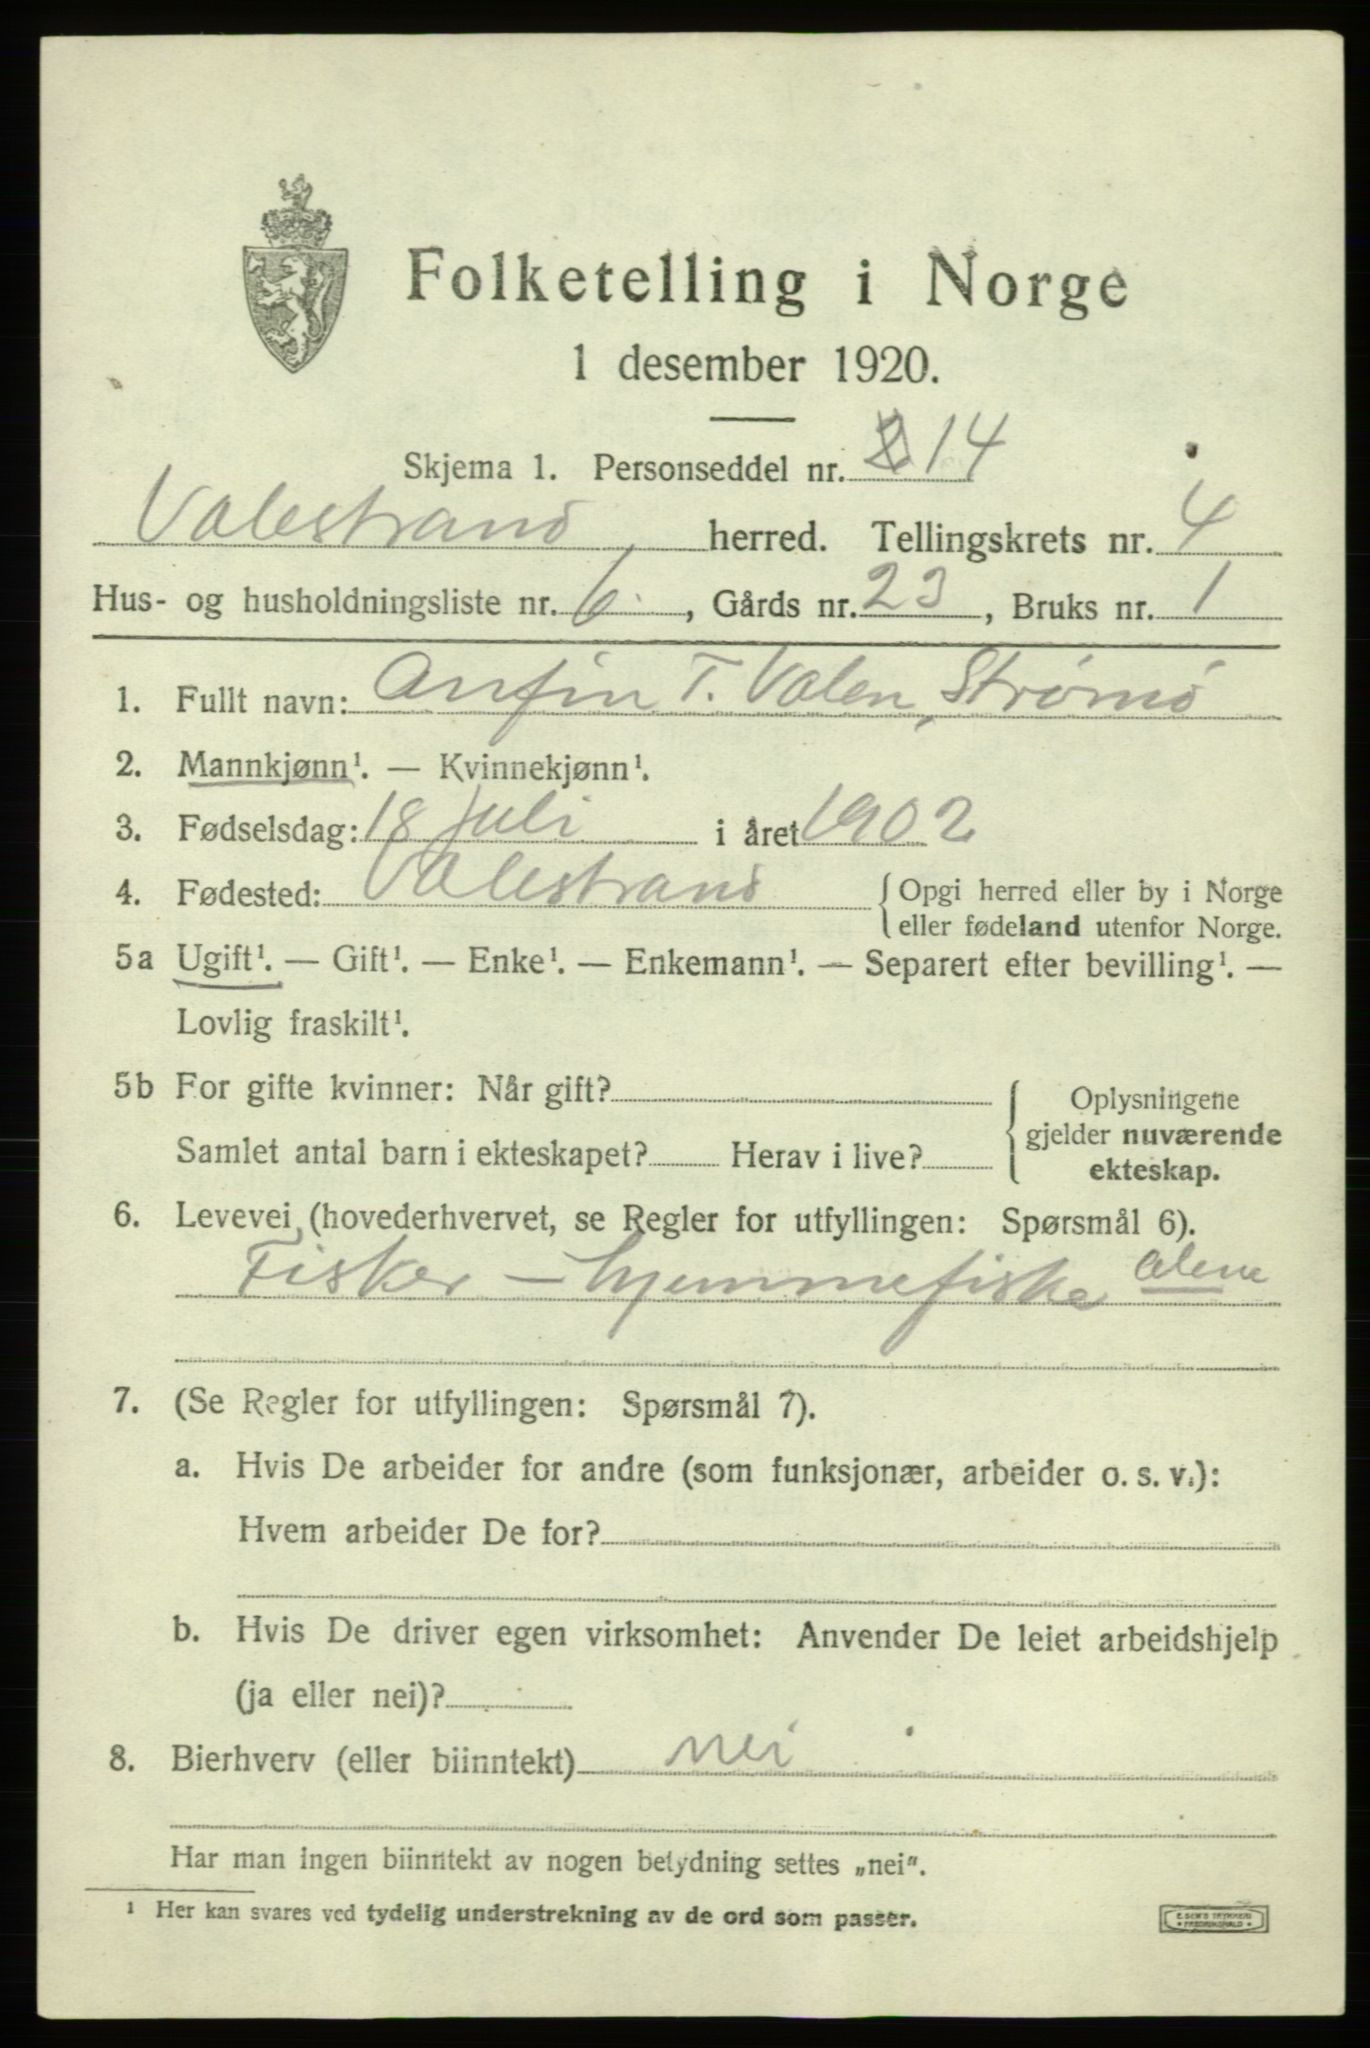 Folketelling i Norge
1 desember 1920.
Skjema 1. Personseddel nr. 14
Valestrand herred. Tellingskrets nr. 4
Hus- og husholdningsliste nr. 6, Gårds nr. 23, Bruks nr. 1
1. Fullt navn: Anfin T. Valen, Strømø
2. Mannkjønn¹. — Kvinnekjønn¹.
3. Fødselsdag: 18 juli i året 1902
4. Fødested: Valestrand { Opgi herred eller by i Norge
eller fødeland utenfor Norge.
5a Ugift¹. — Gift¹. — Enke¹. — Enkemann¹. — Separert efter bevilling¹. —
Lovlig fraskilt¹.
5b For gifte kvinner: Når gift?
Samlet antal barn i ekteskapet? Herav i live?
Oplysningene
gjelder nuværende
ekteskap.
6. Levevei (hovederhvervet, se Regler for utfyllingen: Spørsmål 6).
Fisker — hjemmefiske alene
7. (Se Regler for utfyllingen: Spørsmål 7).
a. Hvis De arbeider for andre (som funksjonær, arbeider o. s. v.):
Hvem arbeider De for?
b. Hvis De driver egen virksomhet: Anvender De leiet arbeidshjelp
(ja eller nei)?
8. Bierhverv (eller biinntekt) nei
Har man ingen biinntekt av nogen betydning settes „nei".
¹ Her kan svares ved tydelig understrekning av de ord som passer.
E. SEM'S TRYKKERI
• FREDRIKSHALD •